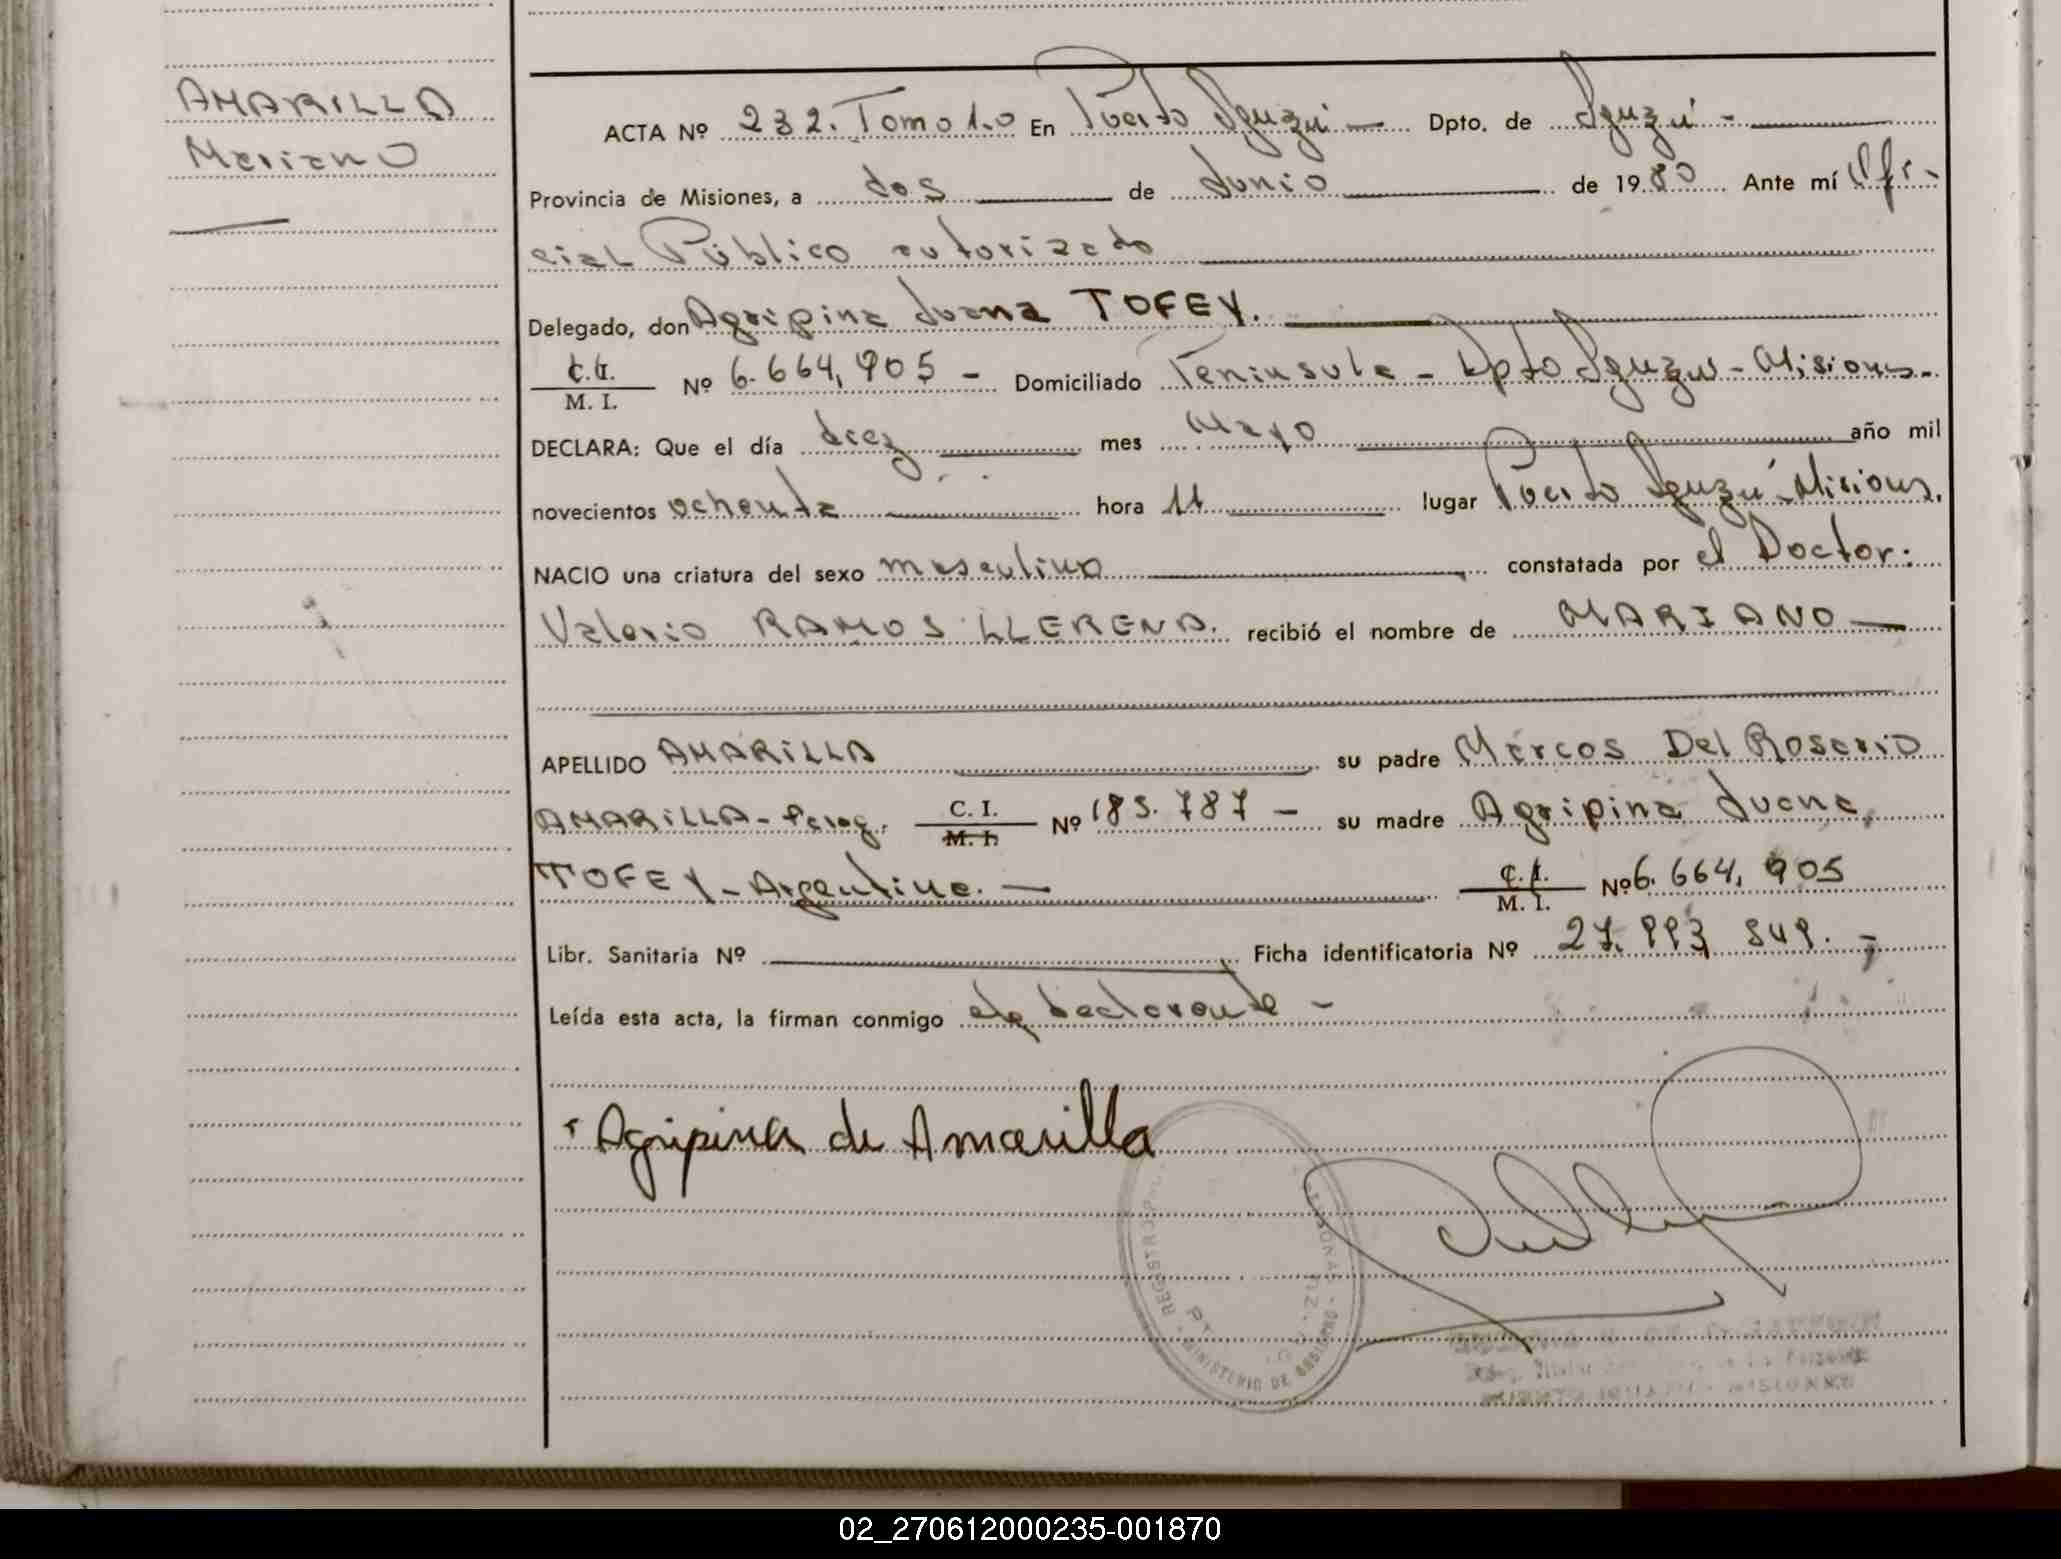 AMARILLA
Mariano
ACTA Nº 232. Tomo 1.o En Puerto Iguazú Dpto. de Iguazú -
Provincia de Misiones, a dos de Junio de 1980 Ante mí Ofi-
cial Público autorizado
Delegado, don Agripina Juana TOFEY.
C.I. M. I. Nº 6.664,905 - Domiciliado Península - Dpto Iguazú - Misiones.-
DECLARA: Que el día diez mes Mayo año mil
novecientos ochenta hora 11 lugar Puerto Iguazú - Misiones.
NACIO una criatura del sexo masculino constatada por el Doctor:
Valerio RAMOS LLERENA. recibió el nombre de MARIANO
APELLIDO AMARILLA su padre Marcos Del Rosario
AMARILLA - Parag. C. I. M. I. Nº 185.787 - su madre Agripina Juana
TOFEY - Argentina. - C.I. M. I. Nº 6.664,905
Libr. Sanitaria Nº Ficha identificatoria Nº 27.993 549. -
Leída esta acta, la firman conmigo la declarante -
Agripina de Amarilla
REGISTRO PERSONAS - MINISTERIO DE
02_270612000235-001870